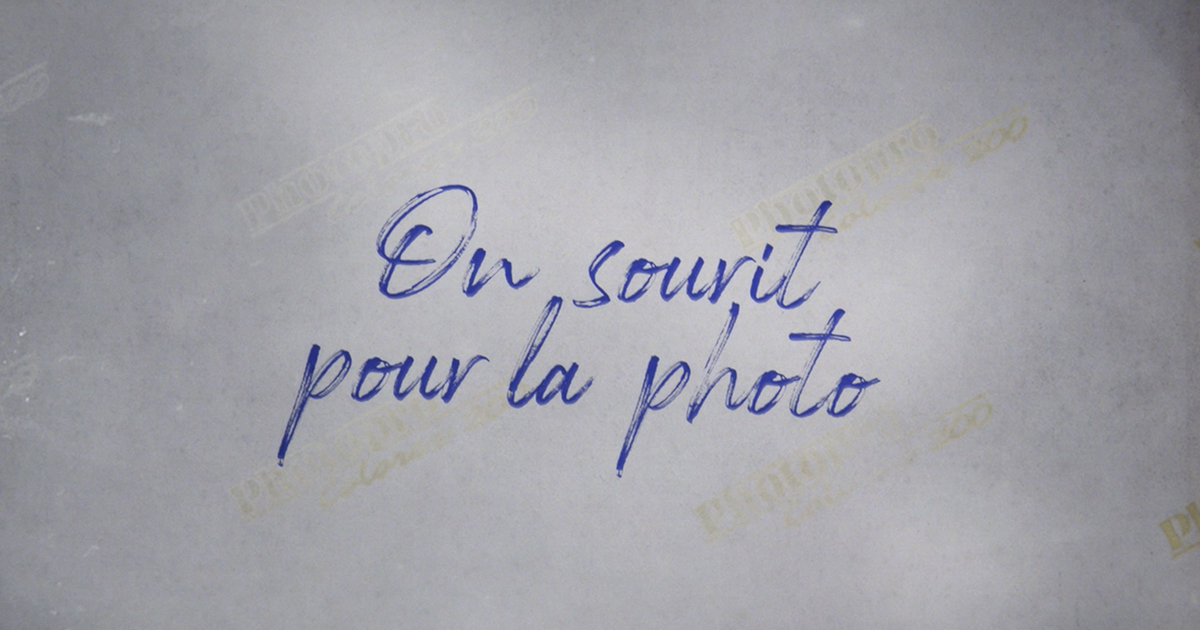 On sourit
pour la photo